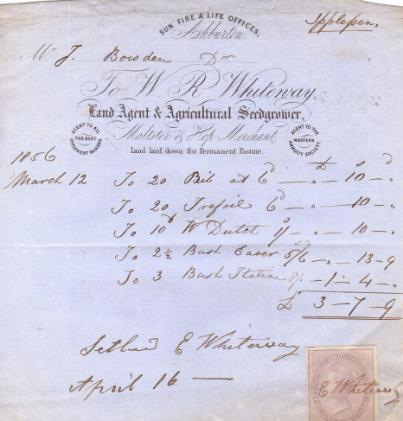 SUN FIRE & LIFE OFFICES.
Ashburton
Ipplepen.
W. J. Bowden Dr
To W R Whiteway,
Land Agent & Agricultural Seedgrower,
Maltster & Hop Merchant.
AGENT TO ALL THE BEST
AGENT TO THE WESTERN ANNUITY SOCIETY.
Land laid down for Permanent Pasture.
1856
£ s d
March 12 To 20 at 6d - " - 10 -
To 20 Trefoil 6d - " - 10 -
To 10 W Dutch 1/ - " - 10 -
To 2½ Bush 5/6 - " - 13 - 9
To 3 Bush 8/. - 1 - 4 -
£ 3 - 7 - 9
Settled E Whiteway
April 16 —
E Whiteway